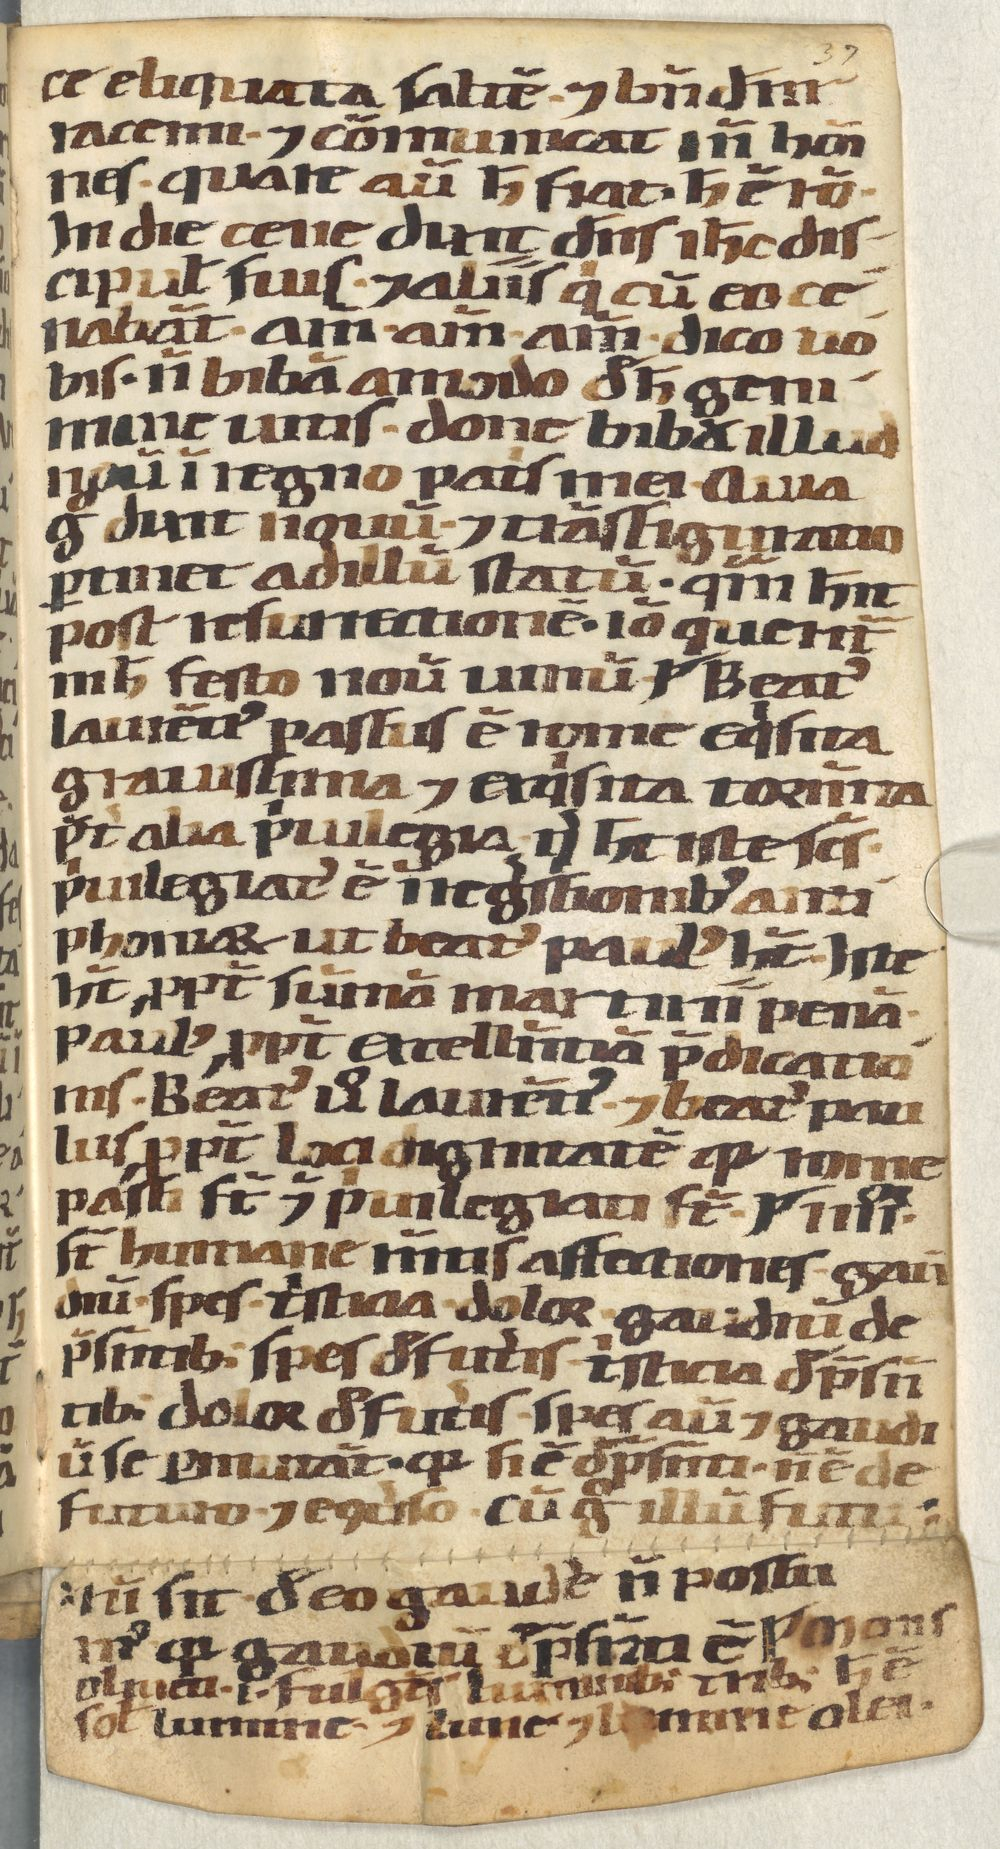 37
ce eliquata saltē · ⁊ bn̄dr̄nt
racemi · ⁊ cōmunicat in̄ hōi
nes · quare aū h̄ fiat · h̄ ē rō ·
In die cene dixit dn̄s ih̄c dis-
cipul̄ suis · ⁊ aliis q̇ cū eo ce
nabāt · am̄ · am̄ · am̄ · dico uo
bis · n̄ bibā amodo d̄ h̄ geni
mine uitis · donc bibā illud
nouū ī regno patīs mei · Quia
g̊ dixit nouū · ⁊ trāsfiguratio
ꝑtinet ad illū statū · qm̄ h̄nt
post resurrectionē · iō querit̄
in h̄ festo nouū uinū · Beatꝰ
laurētꝰ passus ē rome
grauissima ⁊ exq̇sita torm̄ta
p̄t̄ alia pͥuilegia · q̄ h̄t iste sc̄s ·
pͥuilegiatꝰ ē in tͥb
phonaꝝ ut beatꝰ paulꝰ h̄t · Iste
h̄t ꝓpt̄ sūmā martirii penā ·
Paulꝰ ꝓpt̄ excellētiā p̄dicatio
nis · Beatꝰ uͦ laurētꝰ · ⁊ beatꝰ pau
lus ꝓpt̄ loci dignitatē ꝙ rome
passi st̄ ⁊̄ pͥuilegiati st̄ ·
st̄ humane m̄tis affectiones · gau
diū · spes · tͥsticia · dolor · gaudiū de
p̄sētib; spes d̄ futͥis · tͥsticia d̄ p̄sē
tib; dolor d̄ futͥis · spes aū ⁊ gaudi
ū se ꝑmutāt · ꝙ h̄ ē d̄ p̄sēti · n̄ ē de
futuro · ⁊ eq̇so · cū g̊ illū futu
rū sit · d̄ eo gaudē n̄ possu
mꝰ ꝙ gaudiū d̄ p̄sēti ē Mons
oliueti · i · fulgēs luminib; trib; h̄ ē
sol̄ lumine · ⁊ lune ⁊ lumine olei ·